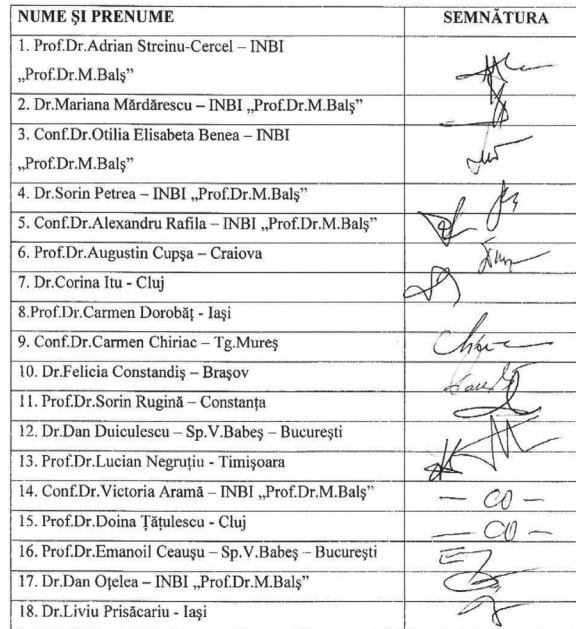 NUME ŞI PRENUME SEMNĂTURA
1. Prof.Dr.Adrian Streinu-Cercel – INBI
„Prof.Dr.M.Balş”
2. Dr.Mariana Mărdărescu – INBI „Prof.Dr.M.Balş”
3. Conf.Dr.Otilia Elisabeta Benea – INBI
„Prof.Dr.M.Balş”
4. Dr.Sorin Petrea – INBI „Prof.Dr.M.Balş”
5. Conf.Dr.Alexandru Rafila – INBI „Prof.Dr.M.Balş”
6. Prof.Dr.Augustin Cupşa – Craiova
7. Dr.Corina Itu - Cluj
8.Prof.Dr.Carmen Dorobăţ - Iaşi
9. Conf.Dr.Carmen Chiriac – Tg.Mureş
10. Dr.Felicia Constandiş – Braşov
11. Prof.Dr.Sorin Rugină – Constanţa
12. Dr.Dan Duiculescu – Sp.V.Babeş – Bucureşti
13. Prof.Dr.Lucian Negruţiu - Timişoara
14. Conf.Dr.Victoria Aramă – INBI „Prof.Dr.M.Balş” — CO —
15. Prof.Dr.Doina Ţăţulescu - Cluj — CO —
16. Prof.Dr.Emanoil Ceauşu – Sp.V.Babeş – Bucureşti
17. Dr.Dan Oţelea – INBI „Prof.Dr.M.Balş”
18. Dr.Liviu Prisăcariu - Iaşi